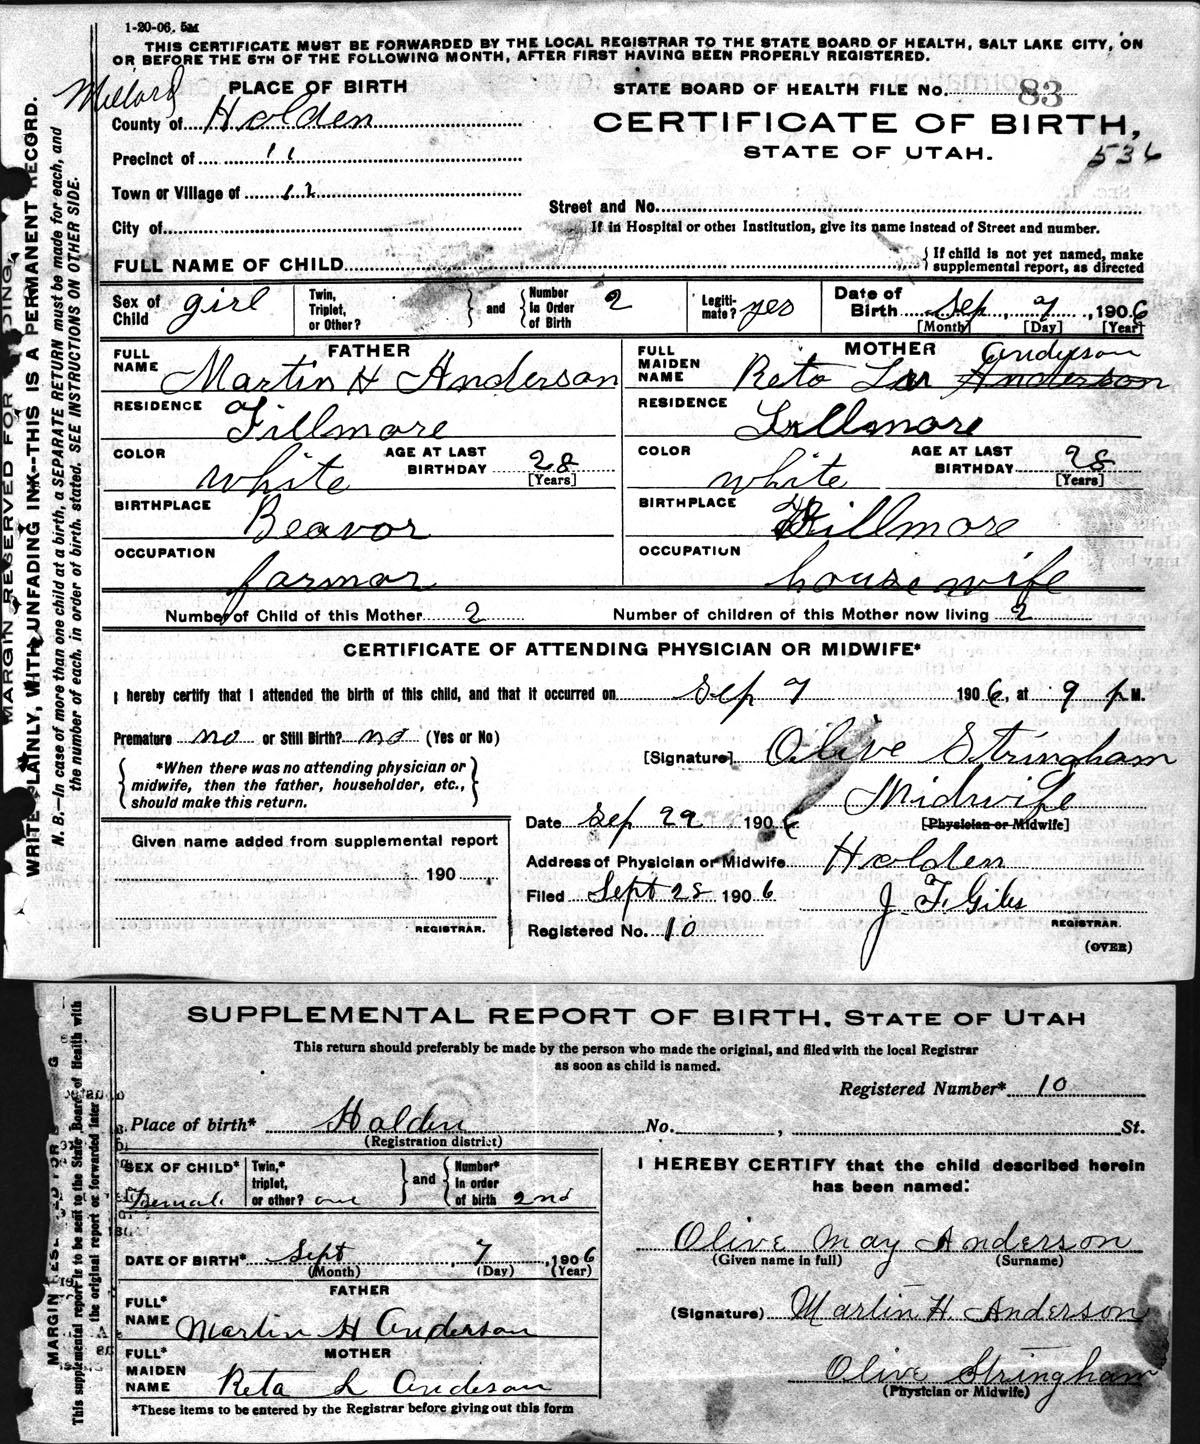 1-20-06. 5M
THIS CERTIFICATE MUST BE FORWARDED BY THE LOCAL REGISTRAR TO THE STATE BOARD OF HEALTH, SALT LAKE CITY, ON
OR BEFORE THE 5TH OF THE FOLLOWING MONTH, AFTER FIRST HAVING BEEN PROPERLY REGISTERED.
MARGIN RESERVED FOR
WRITE PLAINLY, WITH UNFADING INK--THIS IS A PERMANENT RECORD.
N. B.—In case of more than one child at a birth, a SEPARATE RETURN must be made for each, and
the number of each, in order of birth, stated. SEE INSTRUCTIONS ON OTHER SIDE.
Millard
PLACE OF BIRTH
County of Holden
Precinct of 11
Town or Village of 11
City of
STATE BOARD OF HEALTH FILE No. 83
CERTIFICATE OF BIRTH,
STATE OF UTAH.
536
Street and No.
If in Hospital or other Institution, give its name instead of Street and number.
FULL NAME OF CHILD
{ If child is not yet named, make
supplemental report, as directed
Sex of Child girl
Twin, Triplet, or Other? } and { Number in Order of Birth 2
Legitimate? yes
Date of Birth Sep 7, 1906
[Month] [Day] [Year]
FATHER
FULL NAME Martin H Anderson
RESIDENCE Fillmore
COLOR white AGE AT LAST BIRTHDAY 28
[Years]
BIRTHPLACE Beavor
OCCUPATION farmor
MOTHER
FULL MAIDEN NAME Reta Anderson
RESIDENCE Fillmore
COLOR white AGE AT LAST BIRTHDAY 28
[Years]
BIRTHPLACE Fillmore
OCCUPATION house wife
Number of Child of this Mother 2 Number of children of this Mother now living 2
CERTIFICATE OF ATTENDING PHYSICIAN OR MIDWIFE*
I hereby certify that I attended the birth of this child, and that it occurred on Sep 7 1906, at 9 p M.
Premature no or Still Birth? no (Yes or No)
{ *When there was no attending physician or
midwife, then the father, householder, etc.,
should make this return. }
[Signature] Olive Stringham
Midwife
[Physician or Midwife]
Date Sep 29 1906
Address of Physician or Midwife Holden
Filed Sept 28 1906
J. F. Giles
REGISTRAR.
Registered No. 10
(OVER)
Given name added from supplemental report
190
REGISTRAR.
SUPPLEMENTAL REPORT OF BIRTH, STATE OF UTAH
This return should preferably be made by the person who made the original, and filed with the local Registrar
as soon as child is named.
This supplemental report is to be sent to the State Board of Health with
the original report or forwarded later
Registered Number* 10
Place of birth* Holden No. , St.
(Registration district)
SEX OF CHILD* Female
Twin,* triplet, or other? one } and { Number* in order of birth 2nd
DATE OF BIRTH* Sept 7, 1906
(Month) (Day) (Year)
FATHER
FULL* NAME Martin H Anderson
MOTHER
FULL* MAIDEN NAME Reta L Anderson
*These items to be entered by the Registrar before giving out this form
I HEREBY CERTIFY that the child described herein
has been named:
Olive May Anderson
(Given name in full) (Surname)
(Signature) Martin H. Anderson
Olive Stringham
(Physician or Midwife)